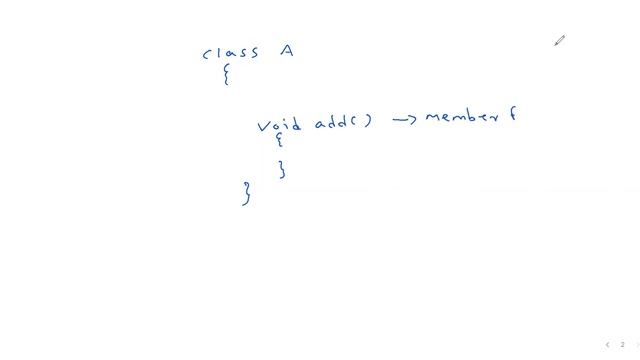 class A
{
void add() → member f
{
}
}
< 2 >